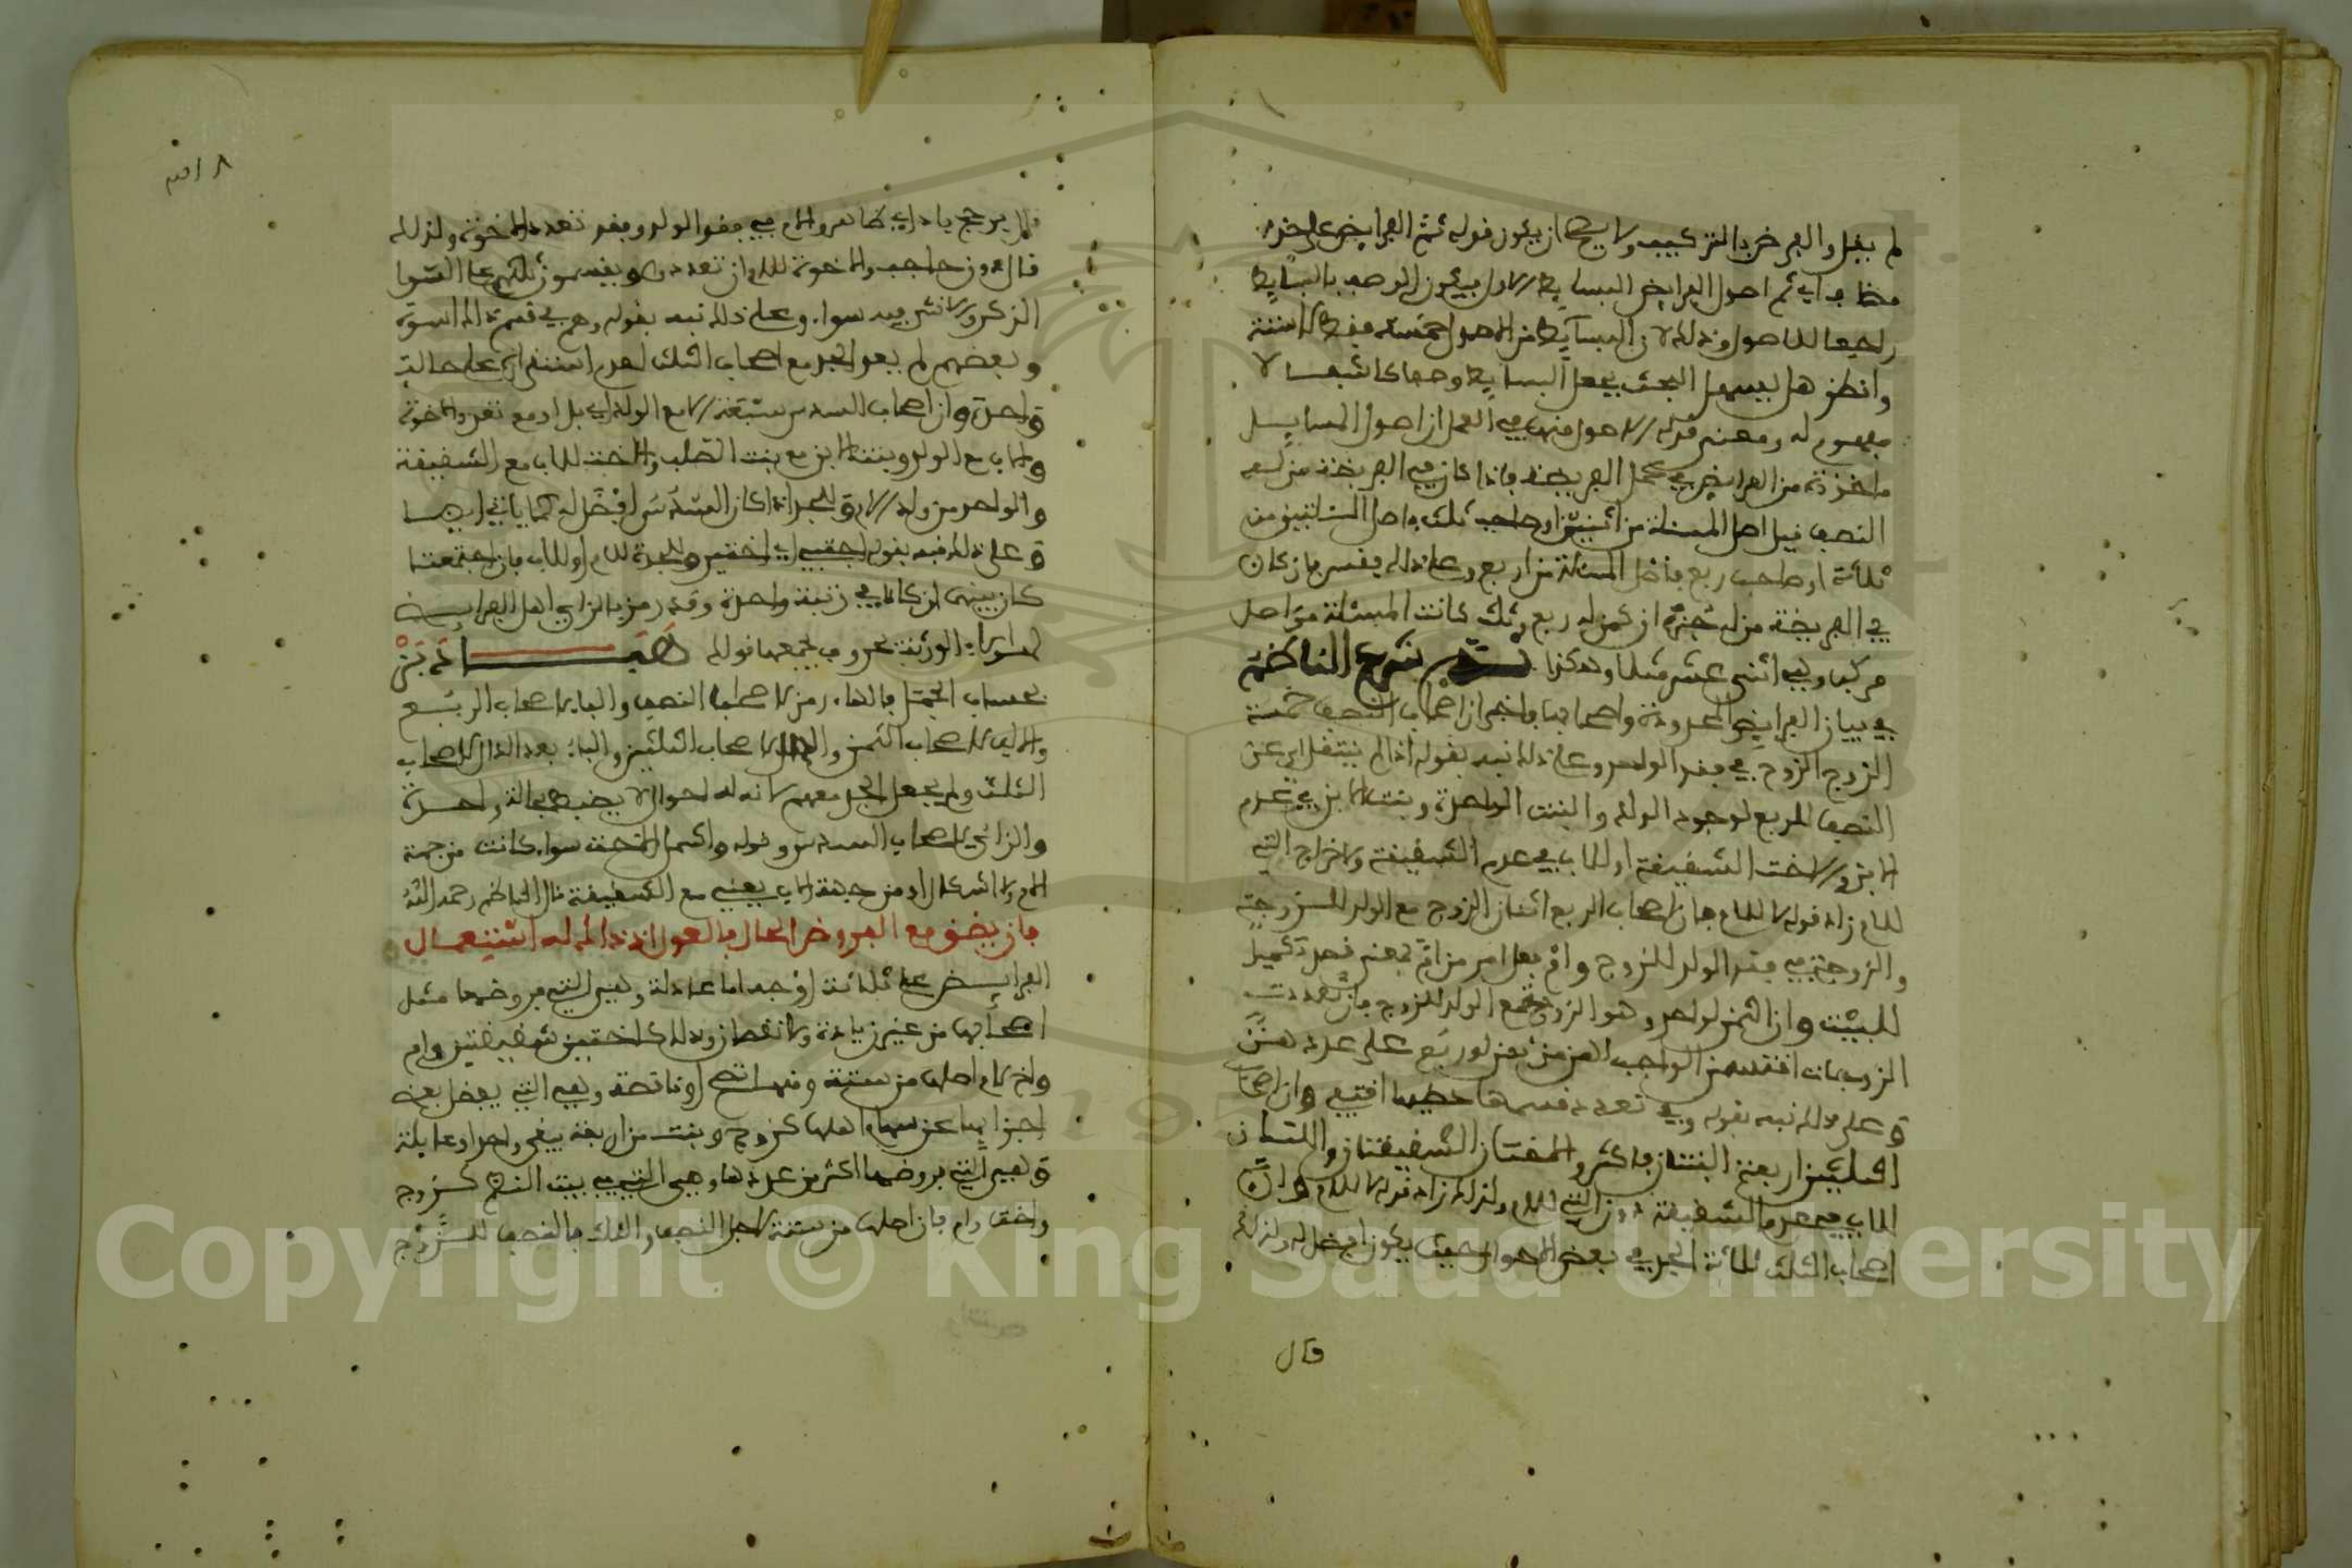 لم يقبل والفرض بالتركيب ولا يصح ان يكون قوله ثم الفرايض على حذف
مضاف اي ثم اصول الفرايض البسايط الاول فيكون الوصف بالبسايط
راجعا للاصول وذلك لان البسايط من الاصول خمسة فقط لا ستة
وانظر هل يسهل البحث بجعل البسايط وصفا كاشفا لا
مفهوم له ومعنى الاصول منها في العمل ان اصول المسايل
ماخوذة من الفرايض في محل الفريضة فاذا كان في الفريضة من له
النصف قيل اصل المسئلة من اثنين او صاحب ثلث فاصل المسئلة من
ثلاثة او صاحب ربع فاصل المسئلة من اربع وعلى ذلك فقس فان كان
في الفريضة من له جزء ان كمن له ربع وثلث كانت المسئلة من اصل
مركب وهي اثني عشر مثلا وهكذا ثم شرع الناظم
في بيان الفرايض المحدودة واصحابها فاخبر ان اصحاب النصف خمسة
الزوج الزوج في فقد الولد وعلى ذلك نبه بقوله اذا لم ينتقل اي عن
النصف للربع لوجود الولد والبنت الواحدة وبنت الابن في عدم
الابن والاخت الشقيقة او للاب في عدم الشقيقة ولاخراج التي
للام زاد قوله لا للام وان اصحاب الربع اثنان الزوج مع الولد للزوجة
والزوجة في فقد الولد للزوج وام فعل امر من ام بمعنى قصد تكميل
للبيت وان الثمن لواحد وهو الزوجة مع الولد للزوج فان تعددت
الزوجات اقتسمن الواجب لهن من ثمن او ربع على عددهن
وعلى ذلك نبه بقوله وفي تعدد قسمها حظها اقتفي وان اصحاب
الثلثين اربعة البنتان فاكثر والاختان الشقيقتان واللتان
للاب في عدم الشقيقة دون التي للام ولذلك زاد قوله لا للام وان
اصحاب الثلث ثلاثة الجد في بعض الاحوال حيث يكون افضل له ولذلك
قال
٨ اقم
فلم يرجح بادلي كما هو والام في فقد الولد وفقد تعدد الاخوة ولذلك
قال دون حاجب والاخوة للام ان تعددوا ويقسمون ثلثهم على السوا
الذكر والانثى فيه سوا وعلى ذلك نبه بقوله وهم في قسمة المال اسوة
وبعضهم لم يعد الجد مع اصحاب الثلث لعدم استقراره على حالة
واحدة وان اصحاب السدس ستة الام مع الولد اي بل او مع تعدد الاخوة
والاب مع الولد وبنت الابن مع بنت الصلب والاخت للاب مع الشقيقة
والواحد من ولد الام والجد اذا كان السدس افضل له كما ياتي ايضا
وعلى ذلك نبه بقوله والجدة للام او للاب فان اجتمعتا
كان بينهما ان كانتا في رتبة واحدة وقد رمز بالزاي اهل الفرايض
لهؤلاء الورثة بحروف يجمعها قولك هبادبز
بحساب الجمل فالهاء رمز لاصحاب النصف والباء لاصحاب الربع
والالف لاصحاب الثمن والدال لاصحاب الثلثين والباء بعد الدال لاصحاب
الثلث ولم يجعل الجد معهم لانه له احوال لا يضبط بحالة واحدة
والزاي لاصحاب السدس وقوله واكمل الاخت سوا كانت من جهة
الام ولا اشكال او من جهة الاب يعني مع الشقيقة قال الناظم رحمه الله
فان يضق مع الفروض المال فالعول اذ ذاك له استعمال
الفرايض على ثلاثة اوجه اما عادلة وهي التي فروضها مثل
اصحابها من غير زيادة ولا نقصان وذلك كاختين شقيقتين وام
واخ لام اصلها من ستة ومنها تصح او ناقصة وهي التي يفضل بعض
اجزايها عن سهام اهلها كزوج وبنت من اربعة يبقى واحد او عايلة
وهي التي فروضها اكثر من عددها وهي التي في بيت النظم كزوج
واخت وام فان اصلها من ستة لاجل النصف والثلث فالنصف للزوج
Copyright © King Saud University
195